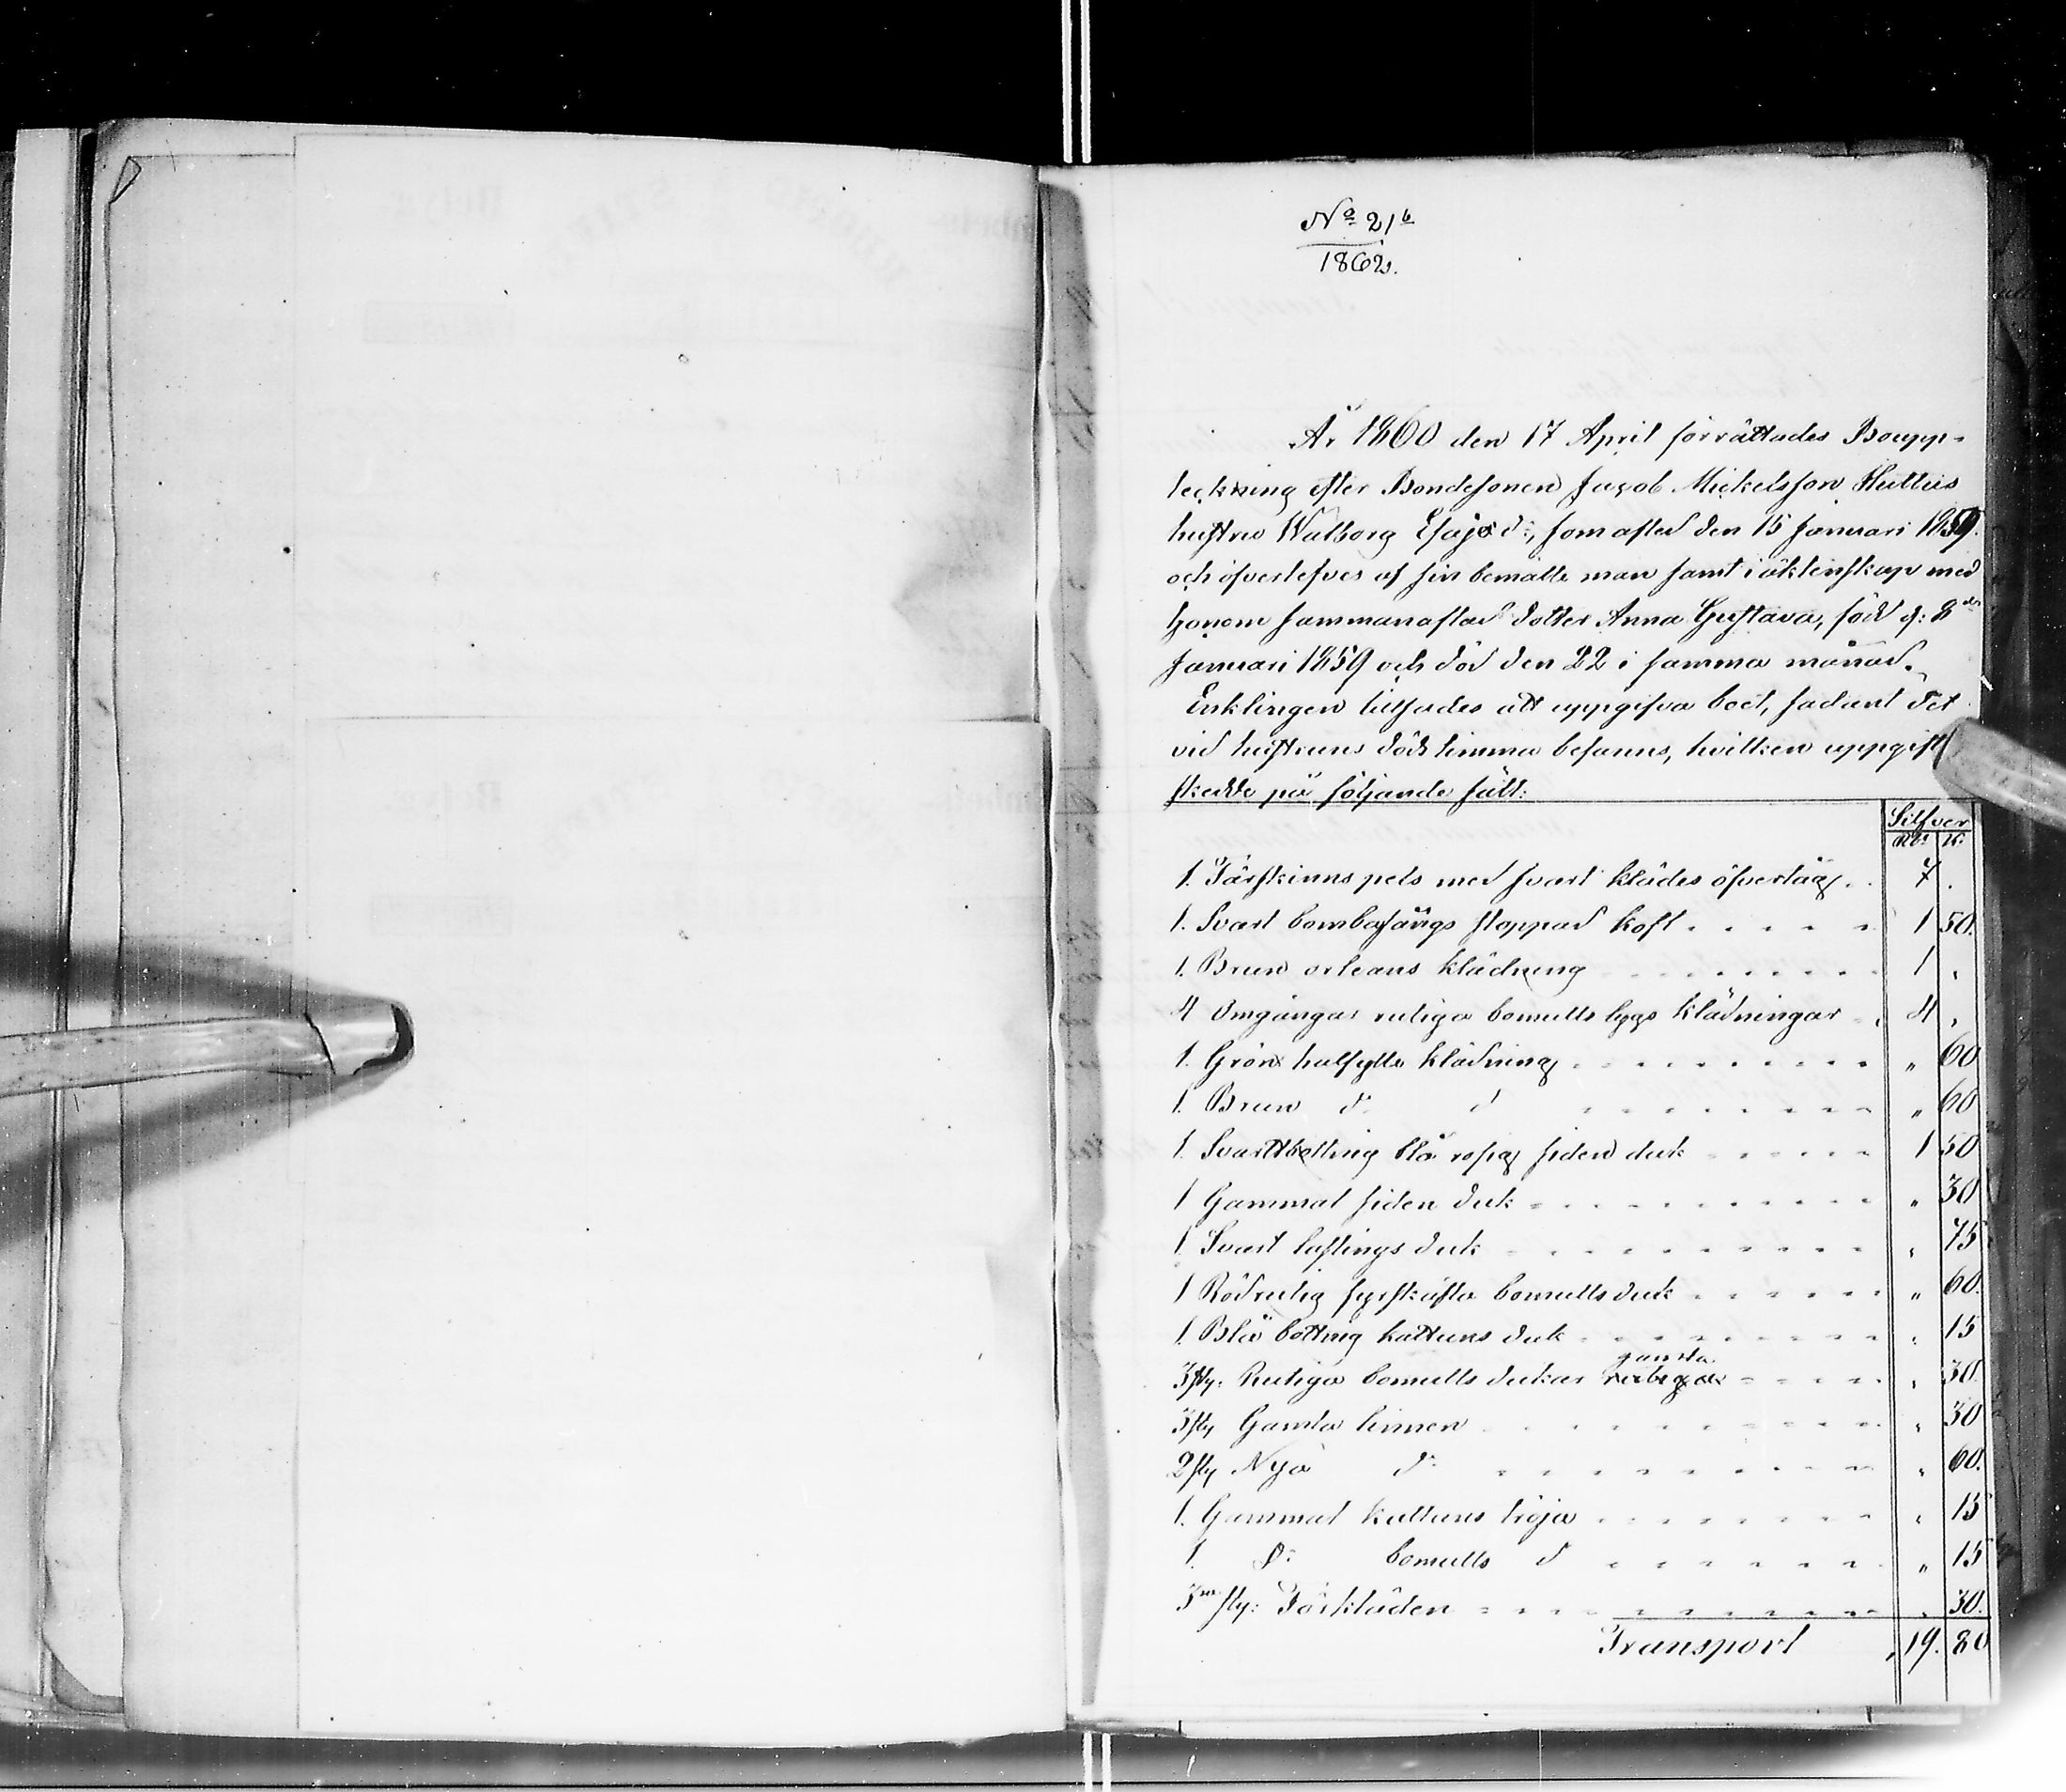 No 21b
1862.
År 1860 den 17 April förrättades Boupp-
teckning efter Bondesonen Jacob Mickelsson Huttus
hustru Walborg Esajæd:, som afled den 15 Januari 1859.
och öfverlefves af sin bemälte man samt i äktenskap med
honom sammanaflad dotter Anna Gustava, född d: 8de
Januari 1859 och död den 22 i samma månad.
Enklingen tillsades att uppgifva boet, sådant det
vid hustruns dödstimma befanns, hvilken uppgift
skedde på följande sätt:
Silfver
Rbl K:
1. Fårskinns pels med svart klädes öfvertåg . . 7 .
1. Svart bombasängs stoppad koft . . . . . 1 50.
1. Brun orleans klädning . . . . . . . 1 "
4 Omgångar rutiga bomulls tygs klädningar . . 4 "
1. Grön halfylle klädning . . . . . . . " 60
1. Brun d:o d . . . . . . . " 60
1. Svartbotting blå rosig siden duk . . . . . 1 50
1 Gammal siden duk . . . . . . . . " 30
1. Svart lastings duk . . . . . . . . " 75
1 Rödrutig fyrskäfta bomullsduk . . . . . " 60.
1. Blå botting kattuns duk . . . . . . . " 15
gamla
3 sty: Rutiga bomulls dukar rutiga . . . . " 30.
3 sty Gamla linnen . . . . . . . . " 30
2 sty Nya d:o . . . . . . . . " 60.
1. Gammal kattuns tröja . . . . . . . " 15
1. D:o bomulls d . . . . . . . " 15
3ne sty: Förkläden . . . . . . . . . " 30.
Transport 19. 80